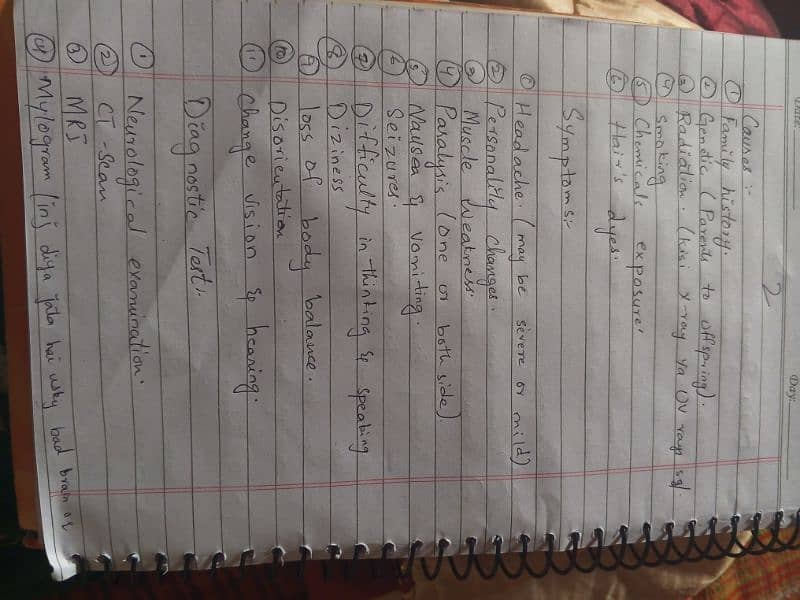 Date:
Day:
2
Causes :-
① Family history.
② Genetic (Parents to offspring).
③ Radiation. (kisi x-ray ya UV rays sy)
④ smoking
⑤ Chemicals exposure.
⑥ Hair's dyes.
Symptoms:-
① Headache. (may be severe or mild)
② Personality changes.
③ Muscle weakness.
④ Paralysis (one or both side)
⑤ Nausea & vomiting.
⑥ Seizures.
⑦ Difficulty in thinking & speaking
⑧ Diziness
⑨ loss of body balance.
⑩ Disorientation
⑪ Change vision & hearing.
Diagnostic Test:-
① Neurological examination.
② CT-Scan
③ MRI
④ Mylogram (inj diya jata hai usky bad brain